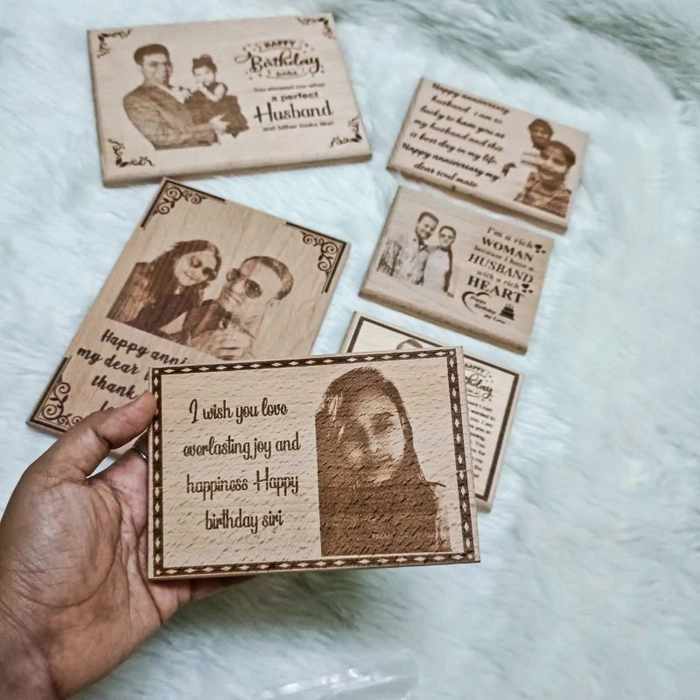 HAPPY
Birthday
BABA
You showed me what
a perfect
Husband
and father looks like!
Happy anniversary
husband i am so
lucky to have you as
my husband and this
is best day in my life.
Happy anniversary my
dear soul mate
I'm a rich
WOMAN
because i have a
HUSBAND
with a rich
HEART
Happy
Birthday
my Love
Happy anni
my dear
thank
HAPPY
I wish you love
everlasting joy and
happiness Happy
birthday siri